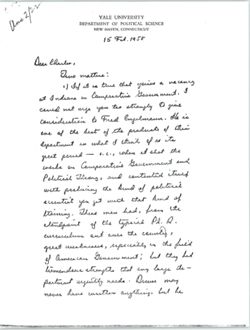 YALE UNIVERSITY
DEPARTMENT OF POLITICAL SCIENCE
NEW HAVEN, CONNECTICUT
15 Feb. 1958
Dear Charles,
Some matters:
1) If it is true that you've a vacancy
at Indiana in Comparative Government, I
could not urge you too strongly to give
consideration to Fred Engelmann. He is
one of the best of the products of this
department in what I think of as its
great period — i.e., when it had the
works in Comparative Government and
Political Theory, and contented itself
with producing the kind of political
scientist you get with that kind of
training. These men had, from the
standpoint of the typical Ph.D.
curriculum out over the country,
great weaknesses, especially in the field
of American Government; but they had
tremendous strengths that any large de-
partment urgently needs. may
never have written anything; but he